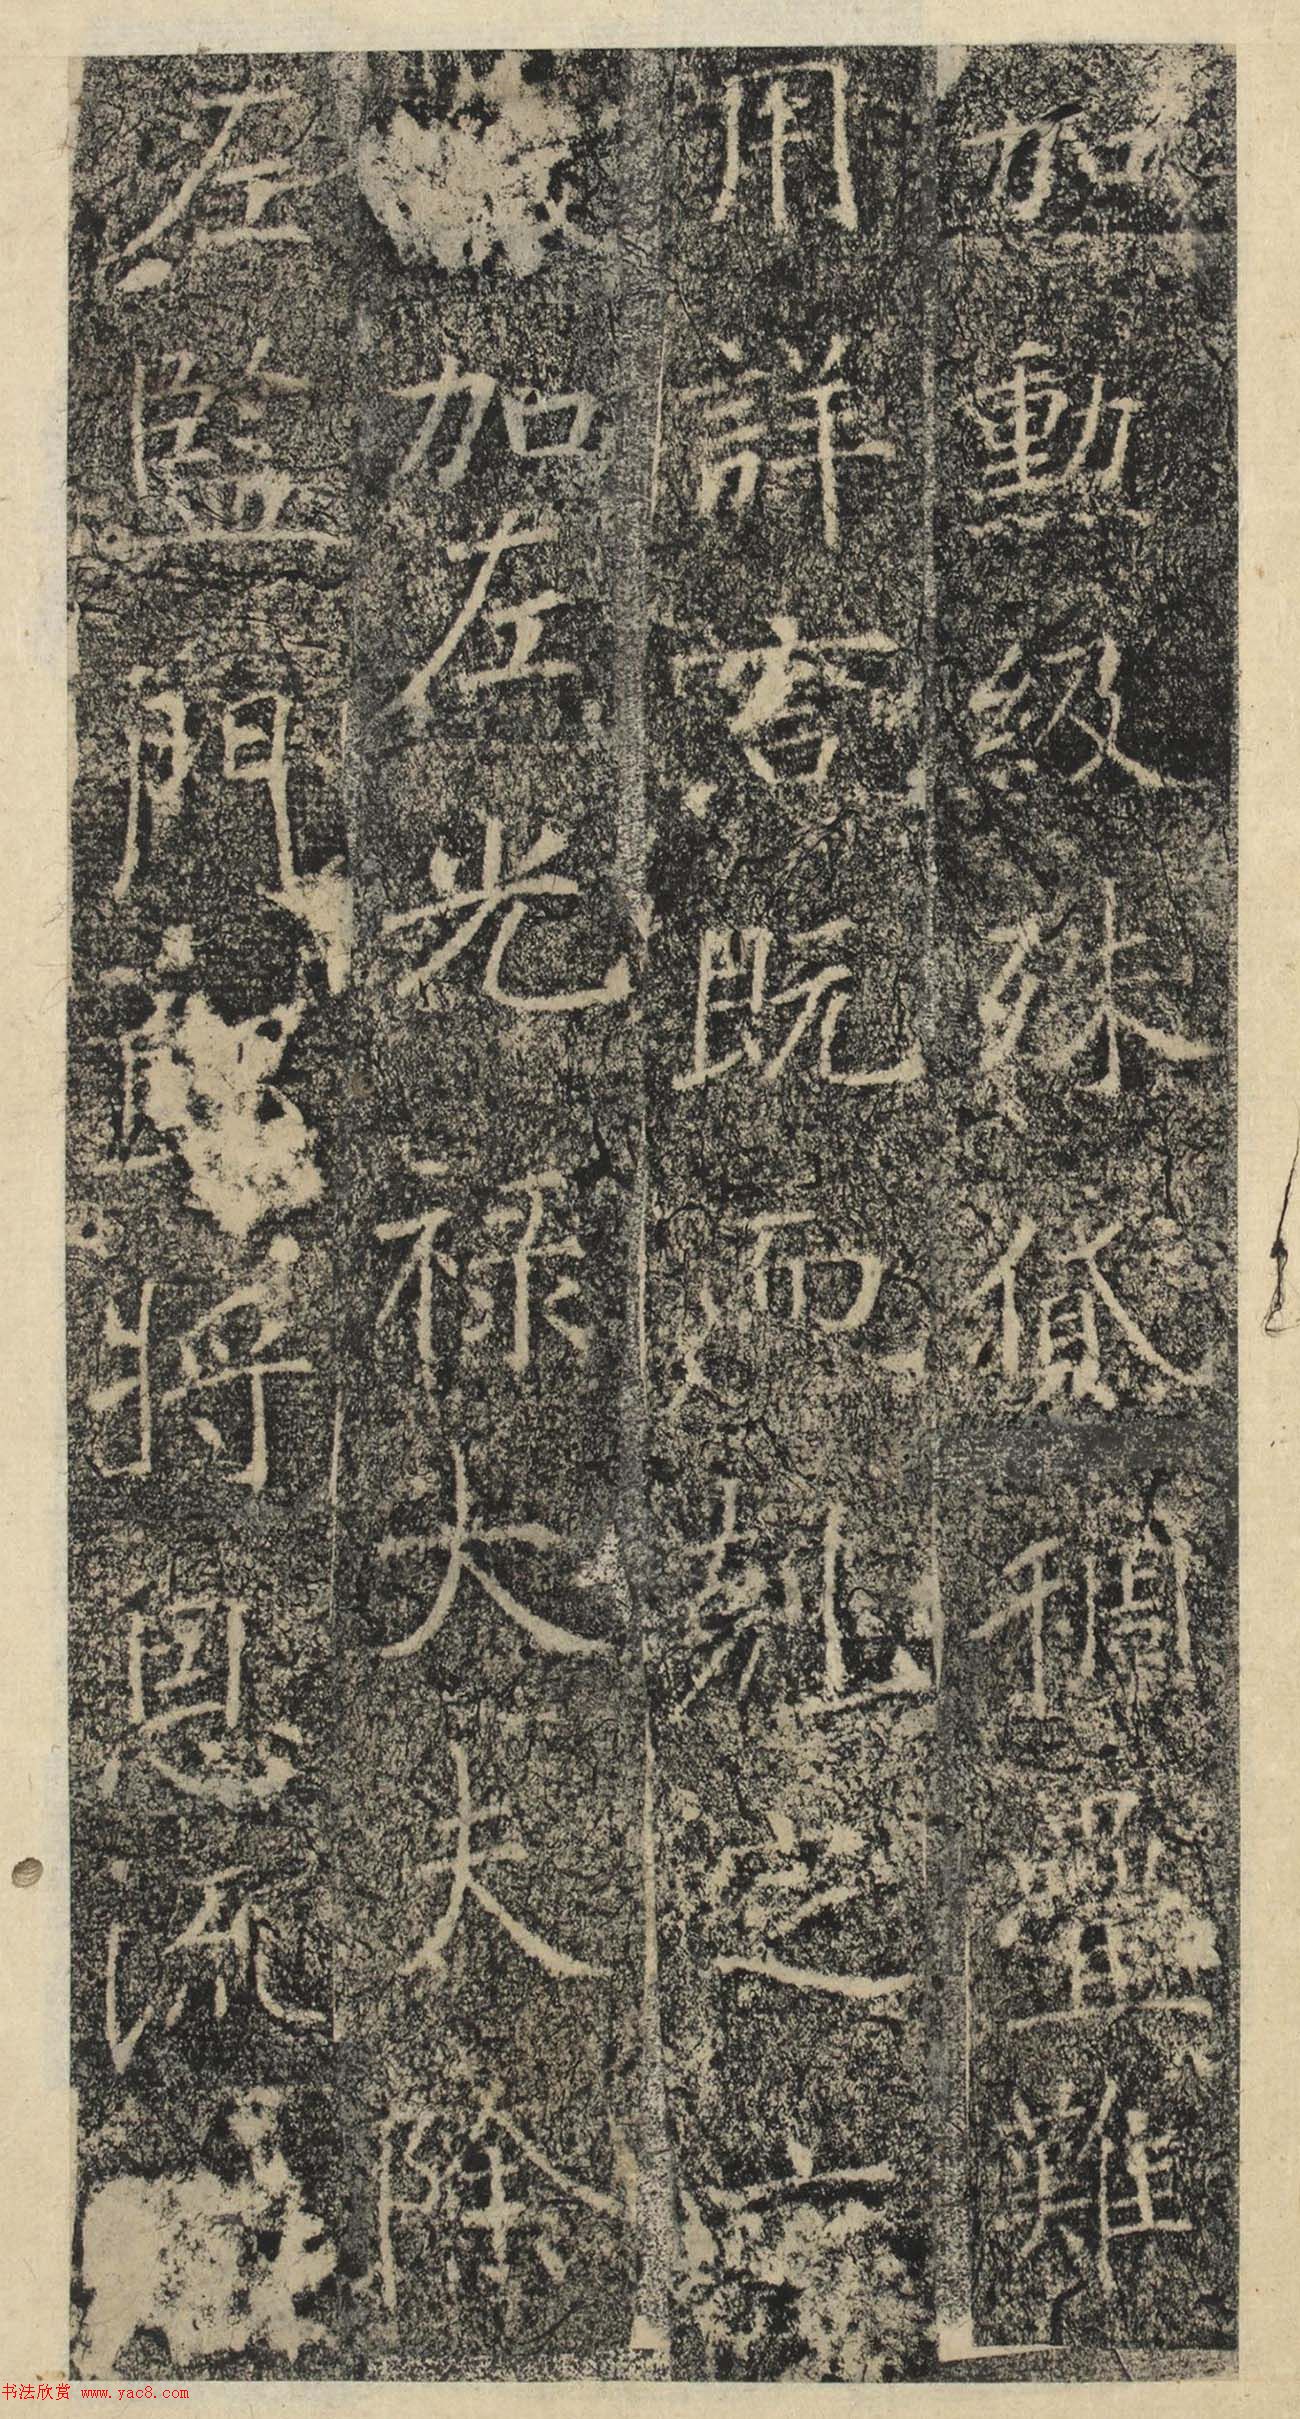 加勳級殊貸稠疊難
用詳既而刻之
加左光祿大夫除
左監門將恩流
书法欣赏 www.yac8.com